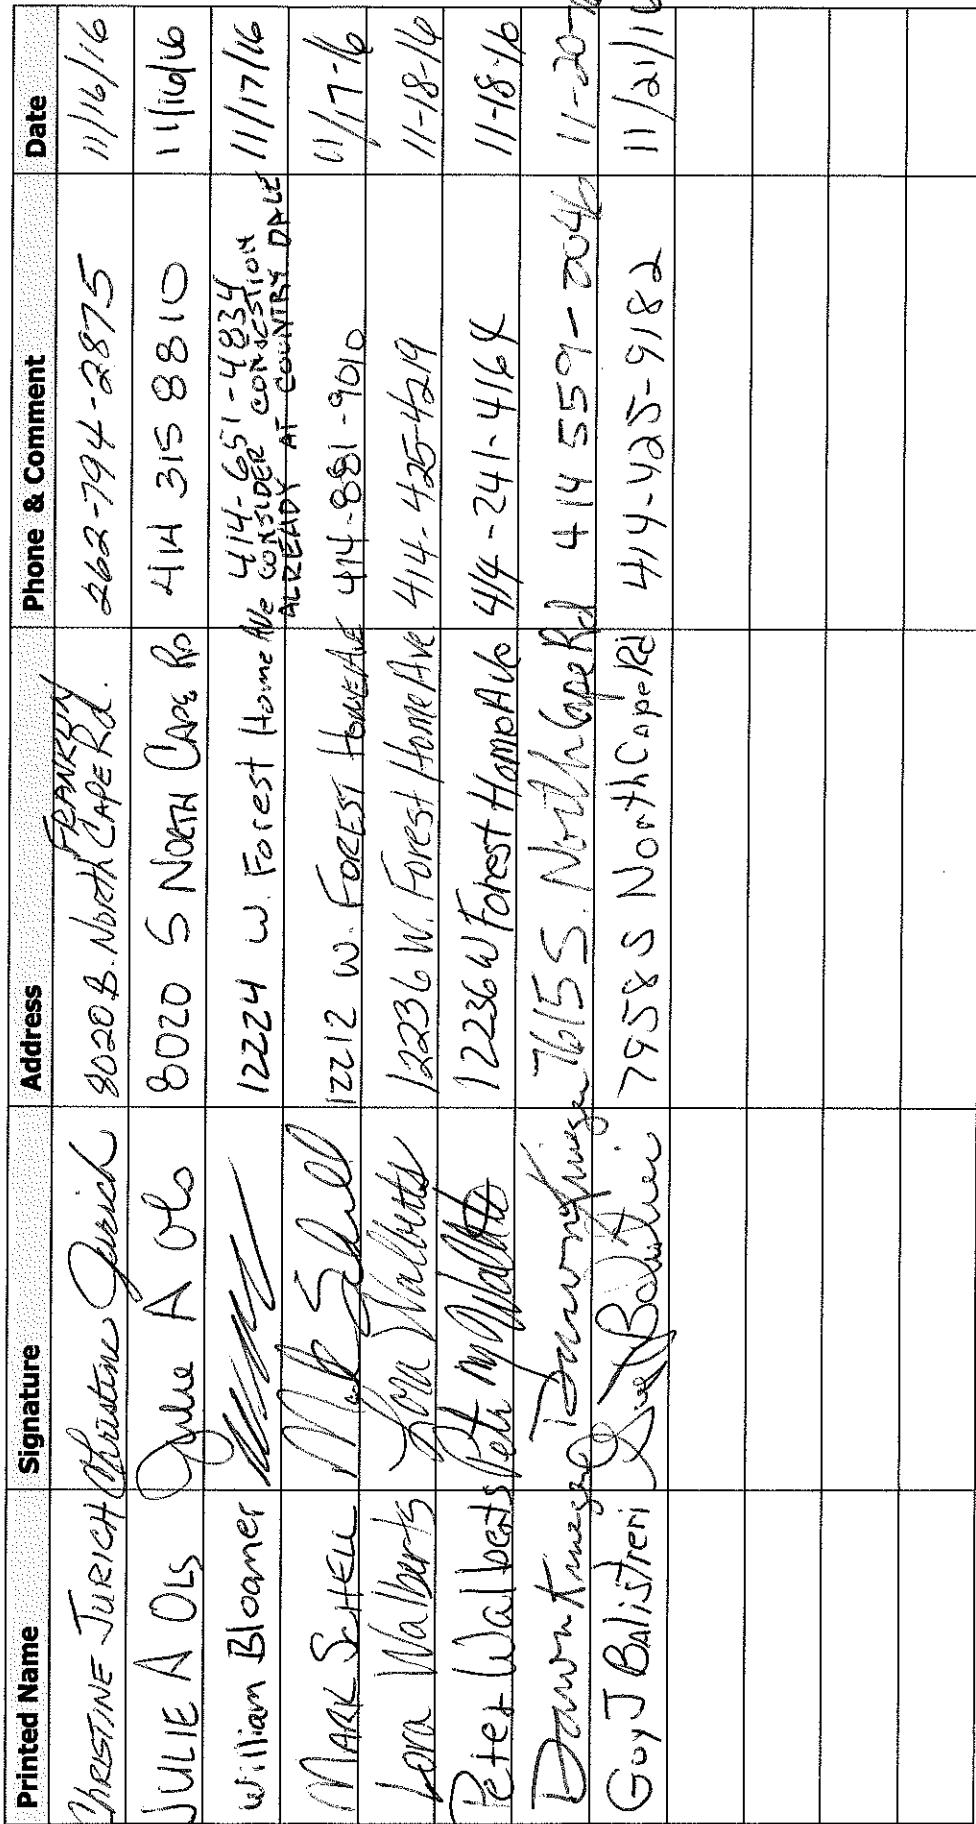 Printed Name Signature Address Phone & Comment Date
FRANKLIN
CHRISTINE JURICH Christine Jurich 8020 S. NORTH CAPE Rd. 262-794-2875 11/16/16
JULIE A OLS Julie A Ols 8020 S NORTH CAPE RD 414 315 8810 11/16/16
William Bloamer 12224 W. Forest Home Ave 414-651-4834 11/17/16
CONSIDER CONGESTION
ALREADY AT COUNTRY DALE
MARK SCHELL Mark Schell 12212 W. FOREST HOME AVE 414-881-9010 11/17-16
Lora Walberts Lora Walberts 12236 W. Forest Home Ave 414-425-4219 11-18-16
Peter Walberts Peter M Walberts 12236 W Forest Home Ave 414-241-4164 11-18-16
Dawn Krueger Dawn Krueger 7615 S. North Cape Rd 414 559-2046 11-20-16
Guy J Balistreri Guy J Balistreri 7958 S North Cape Rd 414-425-9182 11/21/16